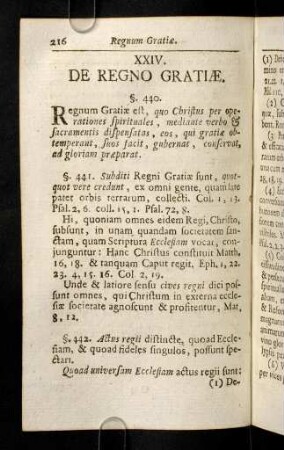 216 Regnum Gratiæ.
XXIV.
DE REGNO GRATIÆ.
§. 440.
Regnum Gratiæ est, quo Christus per ope-
rationes spirituales, mediante verbo &
sacramentis dispensatas, eos, qui gratiæ ob-
temperant, suos facit, gubernat, conservat,
ad gloriam præparat.
§. 441. Subditi Regni Gratiæ sunt, quot-
quot vere credunt, ex omni gente, quam late
patet orbis terrarum, collecti. Col. 1, 13.
Psal. 2, 6. coll. 15, 1. Psal. 72, 8.
Hi, quoniam omnes eidem Regi, Christo,
subsunt, in unam quandam societatem san-
ctam, quam Scriptura Ecclesiam vocat, con-
junguntur: Hanc Christus constituit Matth.
16, 18. & tanquam Caput regit. Eph. 1, 22.
23. 4, 15. 16. Col 2, 19.
Unde & latiore sensu cives regni dici pos-
sunt omnes, qui Christum in externa eccle-
siæ societate agnoscunt & profitentur, Mat.
8, 12.
§. 442. Actus regii distincte, quoad Eccle-
siam, & quoad fideles singulos, possunt spe-
ctari.
Quoad universam Ecclesiam actus regii sunt:
(1) De-